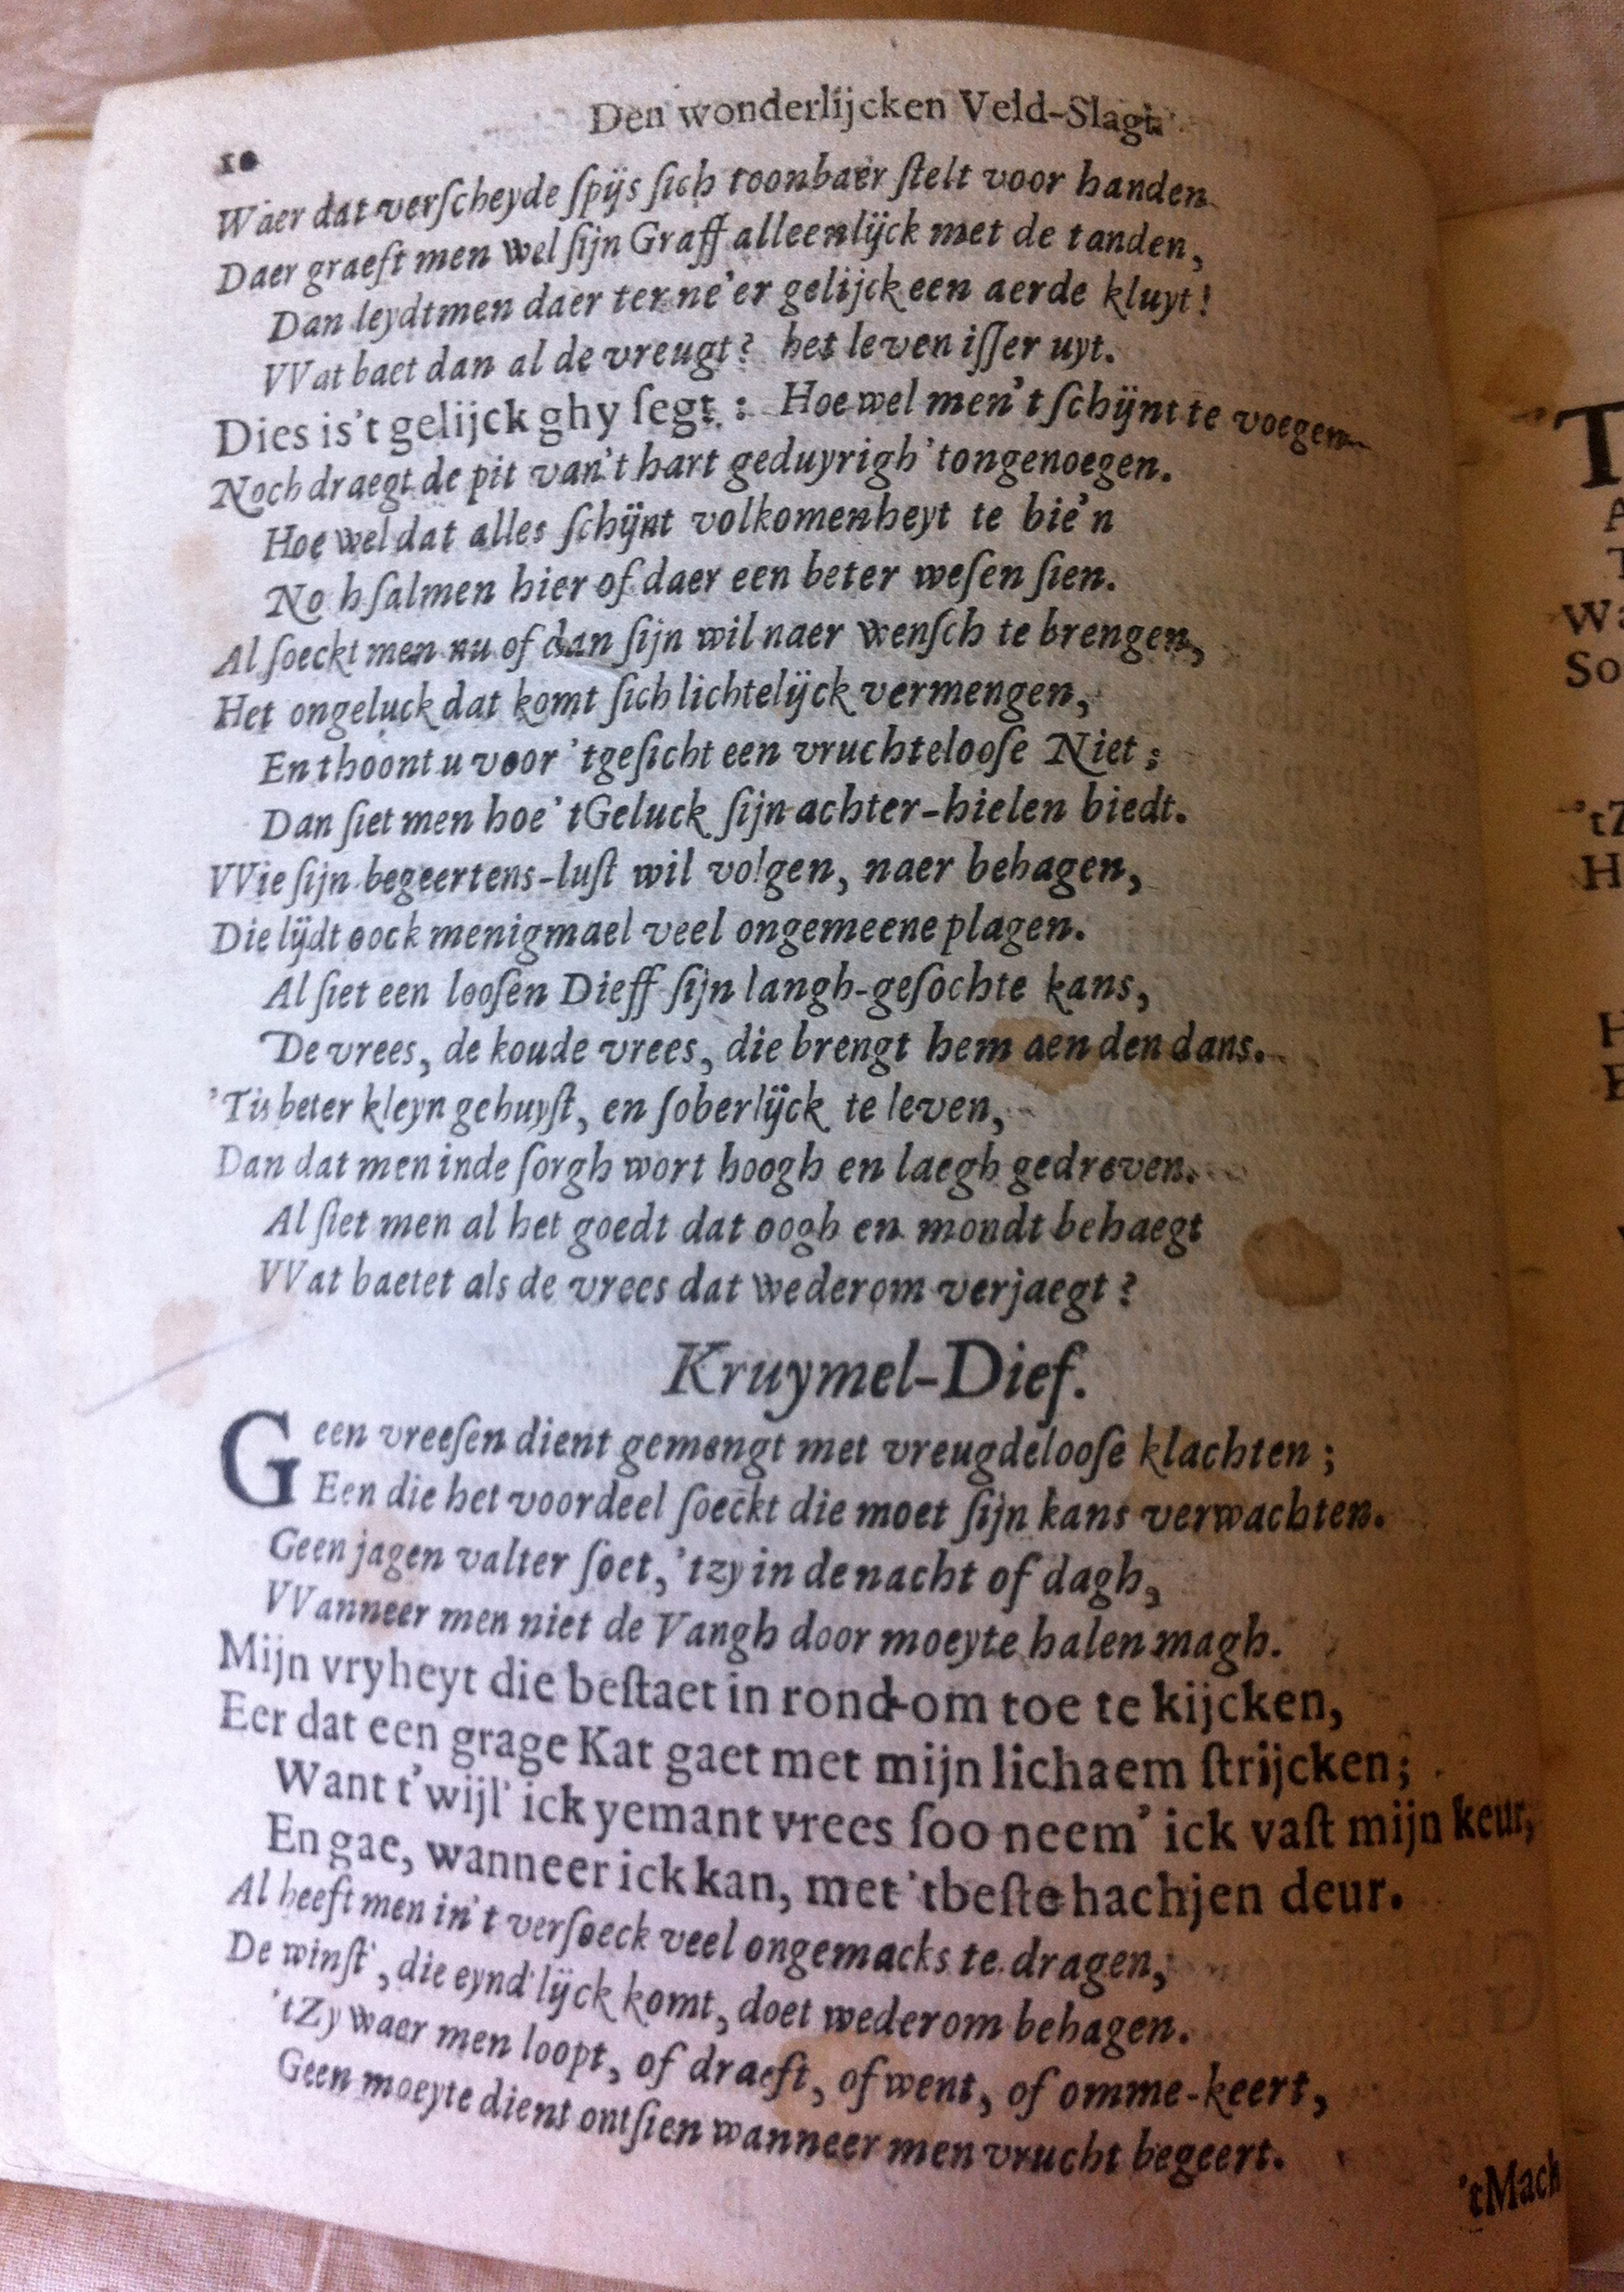 Den wonderlijcken Veld-Slagh.
10
Waer dat verſcheyde ſpijs ſich toonbaer ſtelt voor handen
Daer graeft men wel ſijn Graff alleenlijck met de tanden,
Dan leydtmen daer ter ne'er gelijck een aerde kluyt!
VVat baet dan al de vreugt? het leven iſſer uyt.
Dies is't gelijck ghy ſegt: Hoe wel men't ſchijnt te voegen
Noch draegt de pit van't hart geduyrigh 'tongenoegen.
Hoe wel dat alles ſchijnt volkomenheyt te bie'n
No h ſalmen hier of daer een beter weſen ſien.
Al ſoeckt men nu of dan ſijn wil naer wenſch te brengen,
Het ongeluck dat komt ſich lichtelijck vermengen,
En thoont u voor 'tgeſicht een vruchtelooſe Niet;
Dan ſiet men hoe 'tGeluck ſijn achter-hielen biedt.
VVie ſijn begeertens-luſt wil volgen, naer behagen,
Die lijdt oock menigmael veel ongemeene plagen.
Al ſiet een looſen Dieff ſijn langh-geſochte kans,
De vrees, de koude vrees, die brengt hem aen den dans.
'Tis beter kleyn gehuyſt, en ſoberlijck te leven,
Dan dat men inde ſorgh wort hoogh en laegh gedreven.
Al ſiet men al het goedt dat oogh en mondt behaegt
VVat baetet als de vrees dat wederom verjaegt?
Kruymel-Dief.
Geen vreeſen dient gemengt met vreugdelooſe klachten;
Een die het voordeel ſoeckt die moet ſijn kans verwachten.
Geen jagen valter ſoet, 'tzy in de nacht of dagh,
VVanneer men niet de Vangh door moeyte halen magh.
Mijn vryheyt die beſtaet in rond-om toe te kijcken,
Eer dat een grage Kat gaet met mijn lichaem ſtrijcken;
Want t'wijl' ick yemant vrees ſoo neem' ick vaſt mijn keur,
En gae, wanneer ick kan, met 'tbeſte hachjen deur.
Al heeft men in't verſoeck veel ongemacks te dragen,
De winſt', die eynd'lijck komt, doet wederom behagen.
'tZy waer men loopt, of draeft, of went, of omme-keert,
Geen moeyte dient ontſien wanneer men vrucht begeert.
'tMach
T
A
T
Wa
So
'tZ
H
H
E